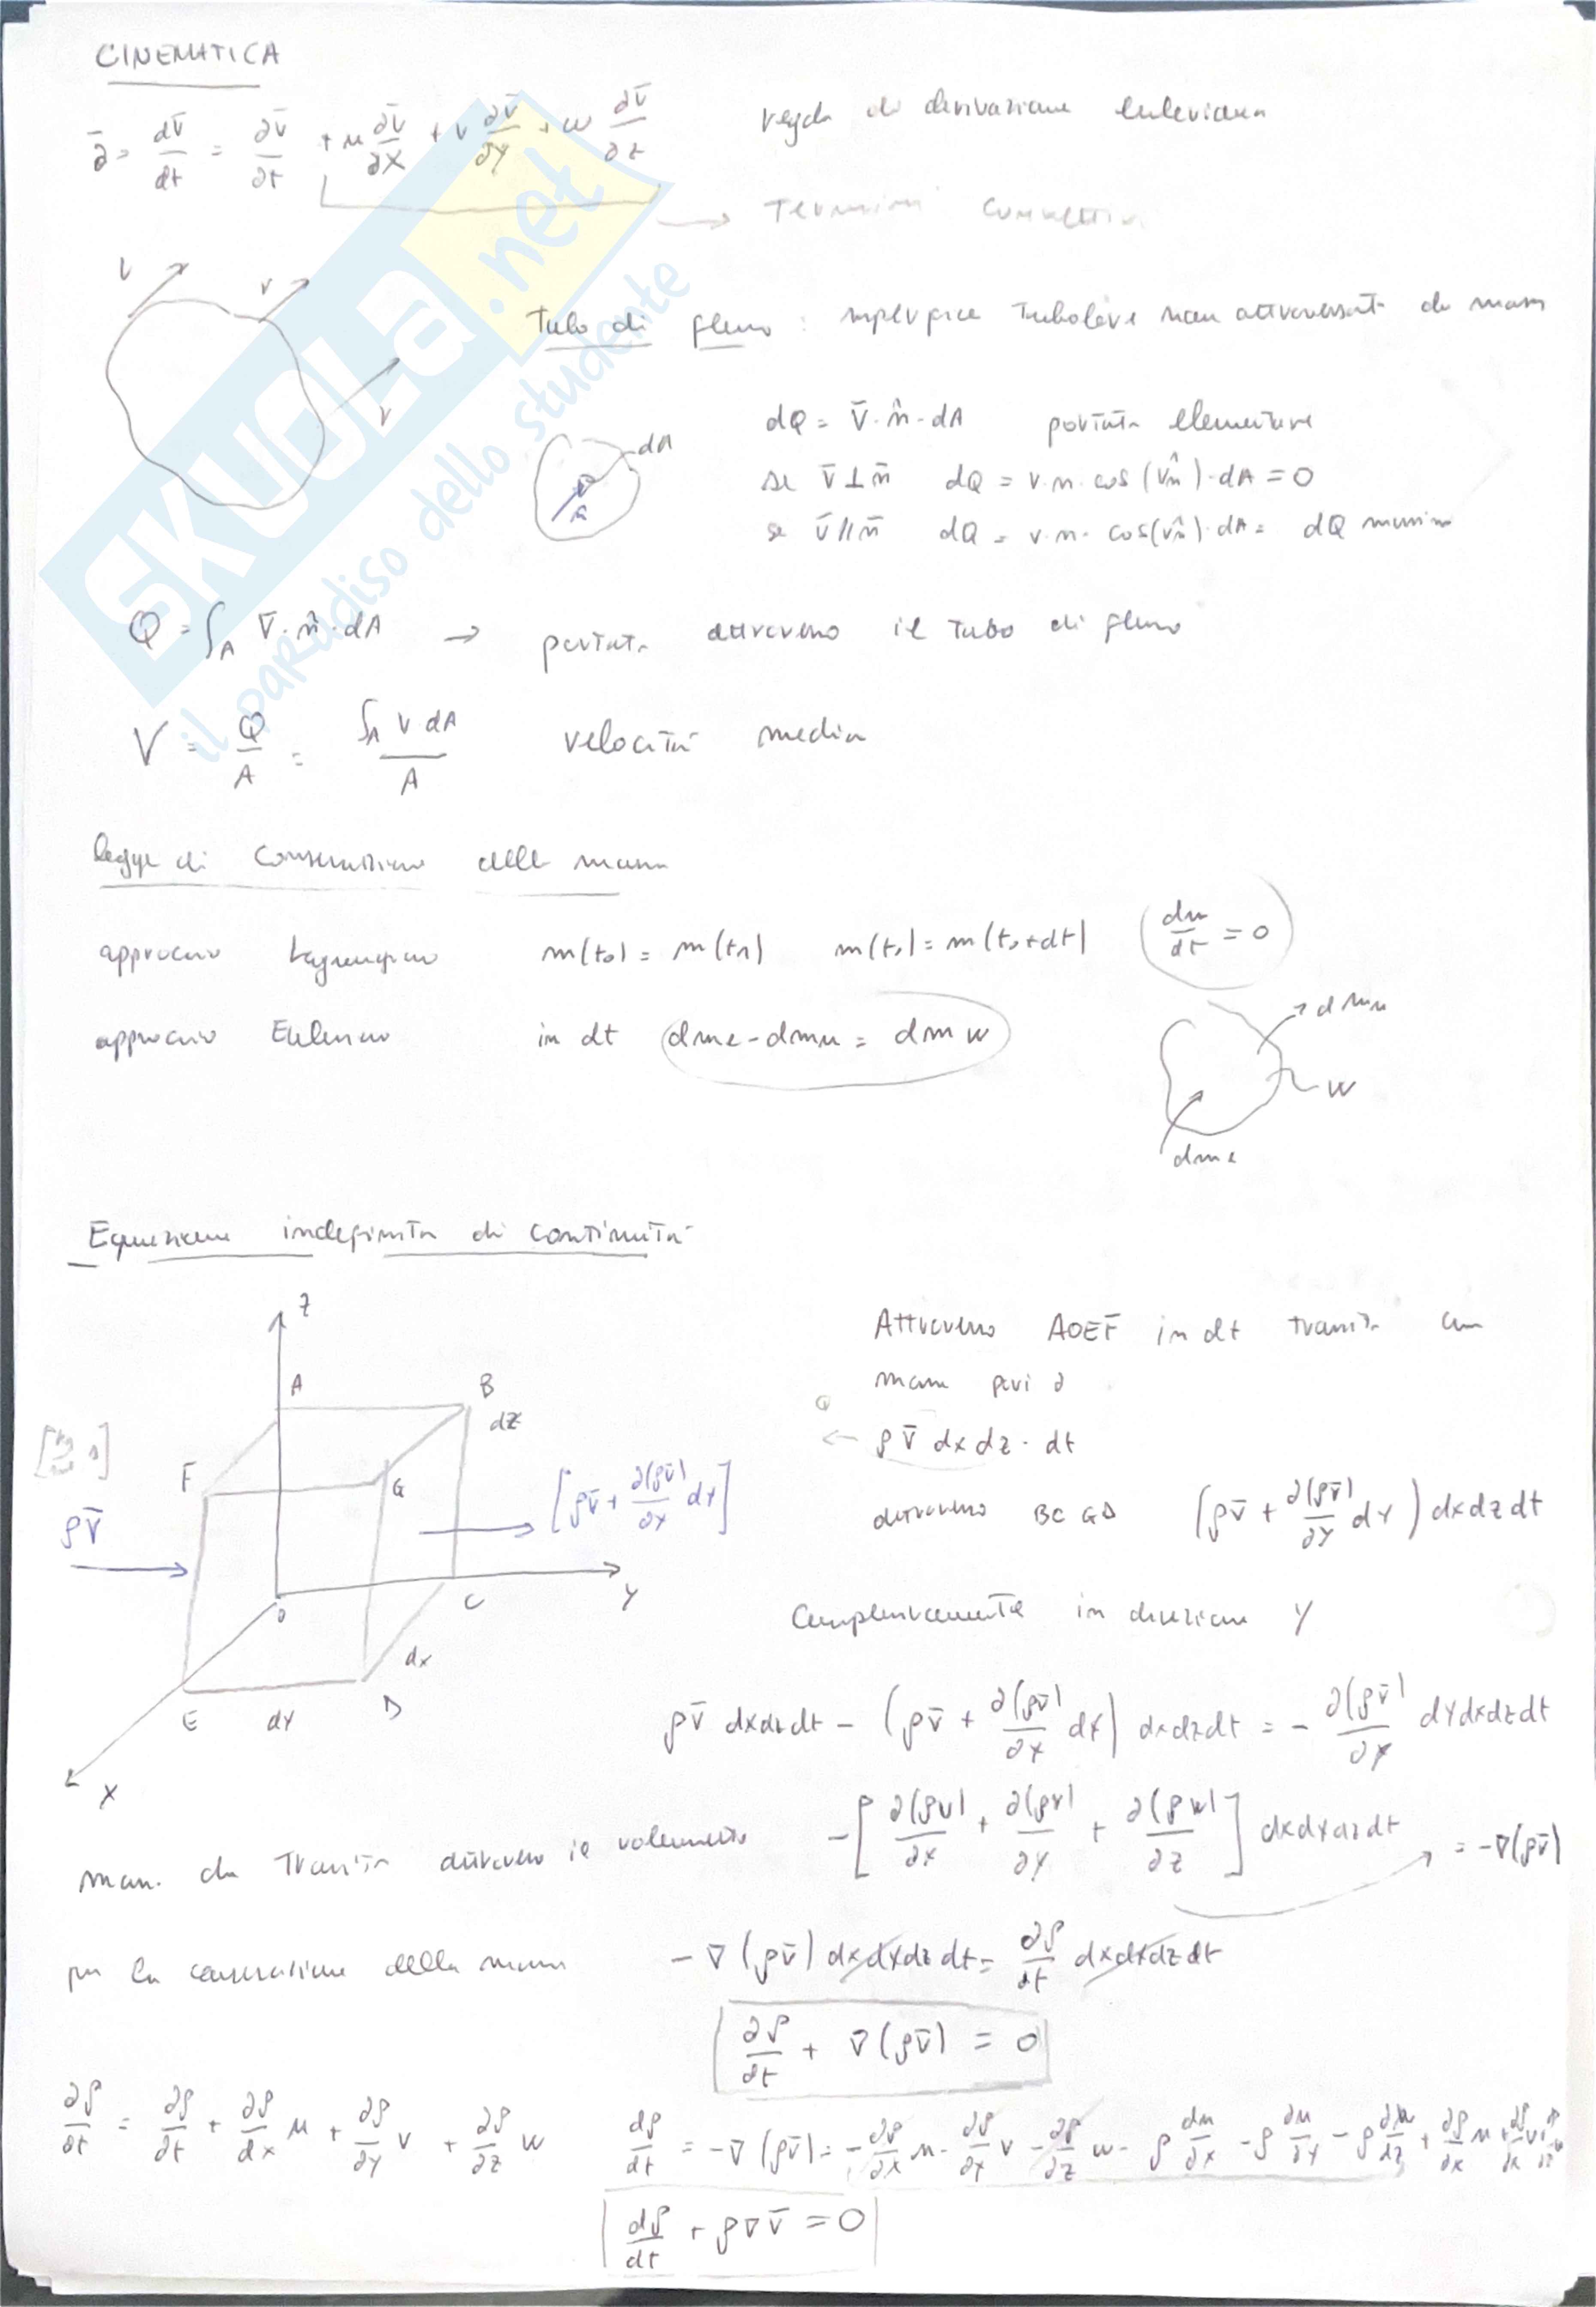 CINEMATICA
ā = dV̄/dt = ∂V̄/∂t + u ∂V̄/∂x + v ∂V̄/∂y + w ∂V̄/∂z regola di derivazione euleriana
→ Termini convettivi
SKUOLA.net
il paradiso dello studente
V V V
Tubo di flusso : superficie tubolare non attraversata da massa
dA
n̂
dQ = V̄·n̂·dA portata elementare
se V̄⊥n̄ dQ = v·n·cos(v̂n)·dA = 0
se V̄//n̄ dQ = v·n·cos(v̂n)·dA = dQ massima
Q = ∫_A V̄·n̂·dA → portata attraverso il tubo di flusso
V = Q/A = ∫_A V dA / A velocità media
legge di conservazione della massa
approccio Lagrangiano m(t₀) = m(t₁) m(t₀) = m(t₀+dt) (dm/dt = 0)
approccio Euleriano in dt dme - dmu = dmw
dmu
W
dme
Equazione indefinita di continuità
z
A B dz
F G
ρV̄
[ρv̄ + ∂(ρv̄)/∂y dy]
O C y
E dy D dx
x
Attraverso AOEF in dt transita una
massa pari a
← ρV̄ dxdz·dt
attraverso BCGD (ρv̄ + ∂(ρv̄)/∂y dy) dxdzdt
Complessivamente in direzione y
ρv̄ dxdzdt - (ρv̄ + ∂(ρv̄)/∂y dy) dxdzdt = - ∂(ρv̄)/∂y dydxdzdt
massa che transita attraverso il volumetto -[∂(ρu)/∂x + ∂(ρv)/∂y + ∂(ρw)/∂z] dxdydzdt = -∇(ρv̄)
per la conservazione della massa -∇(ρv̄) dxdydzdt = ∂ρ/dt dxdydzdt
∂ρ/dt + ∇(ρv̄) = 0
∂ρ/∂t = ∂ρ/∂t + ∂ρ/dx u + ∂ρ/∂y v + ∂ρ/∂z w dρ/dt = -∇(ρv̄) = -∂ρ/∂x u - ∂ρ/∂y v - ∂ρ/∂z w - ρ du/∂x - ρ ∂u/∂y - ρ ∂w/∂z + ∂ρ/∂x u
dρ/dt + ρ∇v̄ = 0